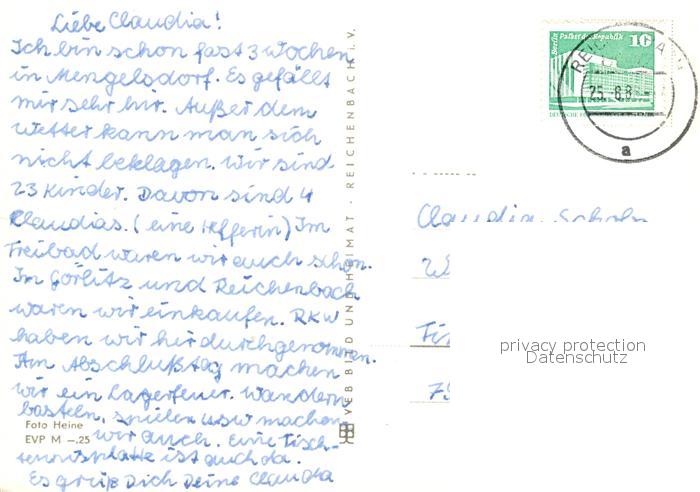 Liebe Claudia!
Ich bin schon fast 3 Wochen
in Mengelsdorf. Es gefällt
mir sehr hir. Außer dem
Wetter kann man sich
nicht beklagen. Wir sind
23 Kinder. Davon sind 4
Claudias. (eine Helferin) Im
Freibad waren wir auch schon.
In Görlitz und Reichenbach
waren wir einkaufen. RKW
haben wir hir durchgenommen.
Am Abschlußtag machen
wir ein Lagerfeuer. Wandern
basteln, spielen usw machen
wir auch. Eine Tisch-
tennisplatte ist auch da.
Es grüß Dich Deine Claudia
Foto Heine
EVP M —.25
VEB BILD UND HEIMAT · REICHENBACH i. V.
Berlin Palast der Republik
10
25.-6.8
a
Claudia
privacy protection
Datenschutz